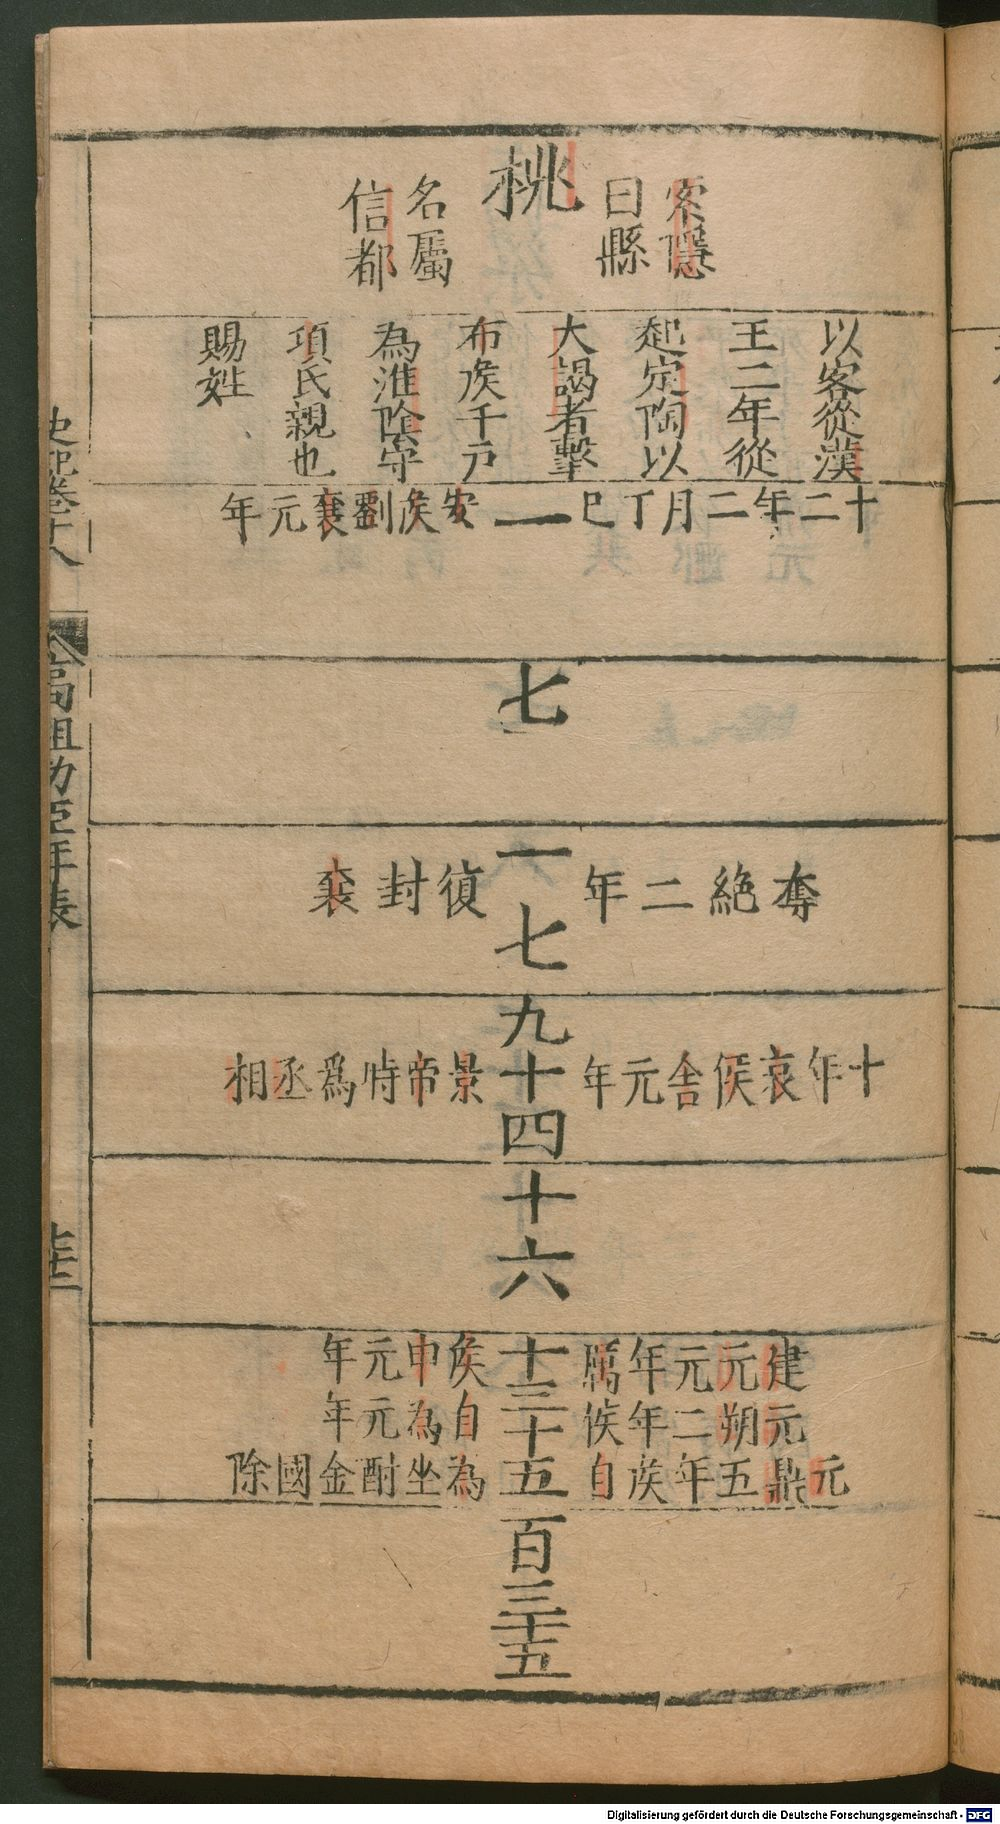 索隱
曰縣
桃
名屬
信都
以客從漢
王二年從
起定陶以
大謁者擊
布侯千戶
為淮陰守
項氏親也
賜姓
十二年二月丁巳
一
安侯劉襄元年
七
一
奪絕二年
復封襄
七
十年哀侯舍元年
九十四
景帝時爲丞相
十六
建元元年厲
元朔二年侯
元鼎五年侯自
十三十五
侯申元年
自為元年
為坐酎金國除
百三十五
史記卷十八
高祖功臣年表
Digitalisierung gefördert durch die Deutsche Forschungsgemeinschaft - DFG